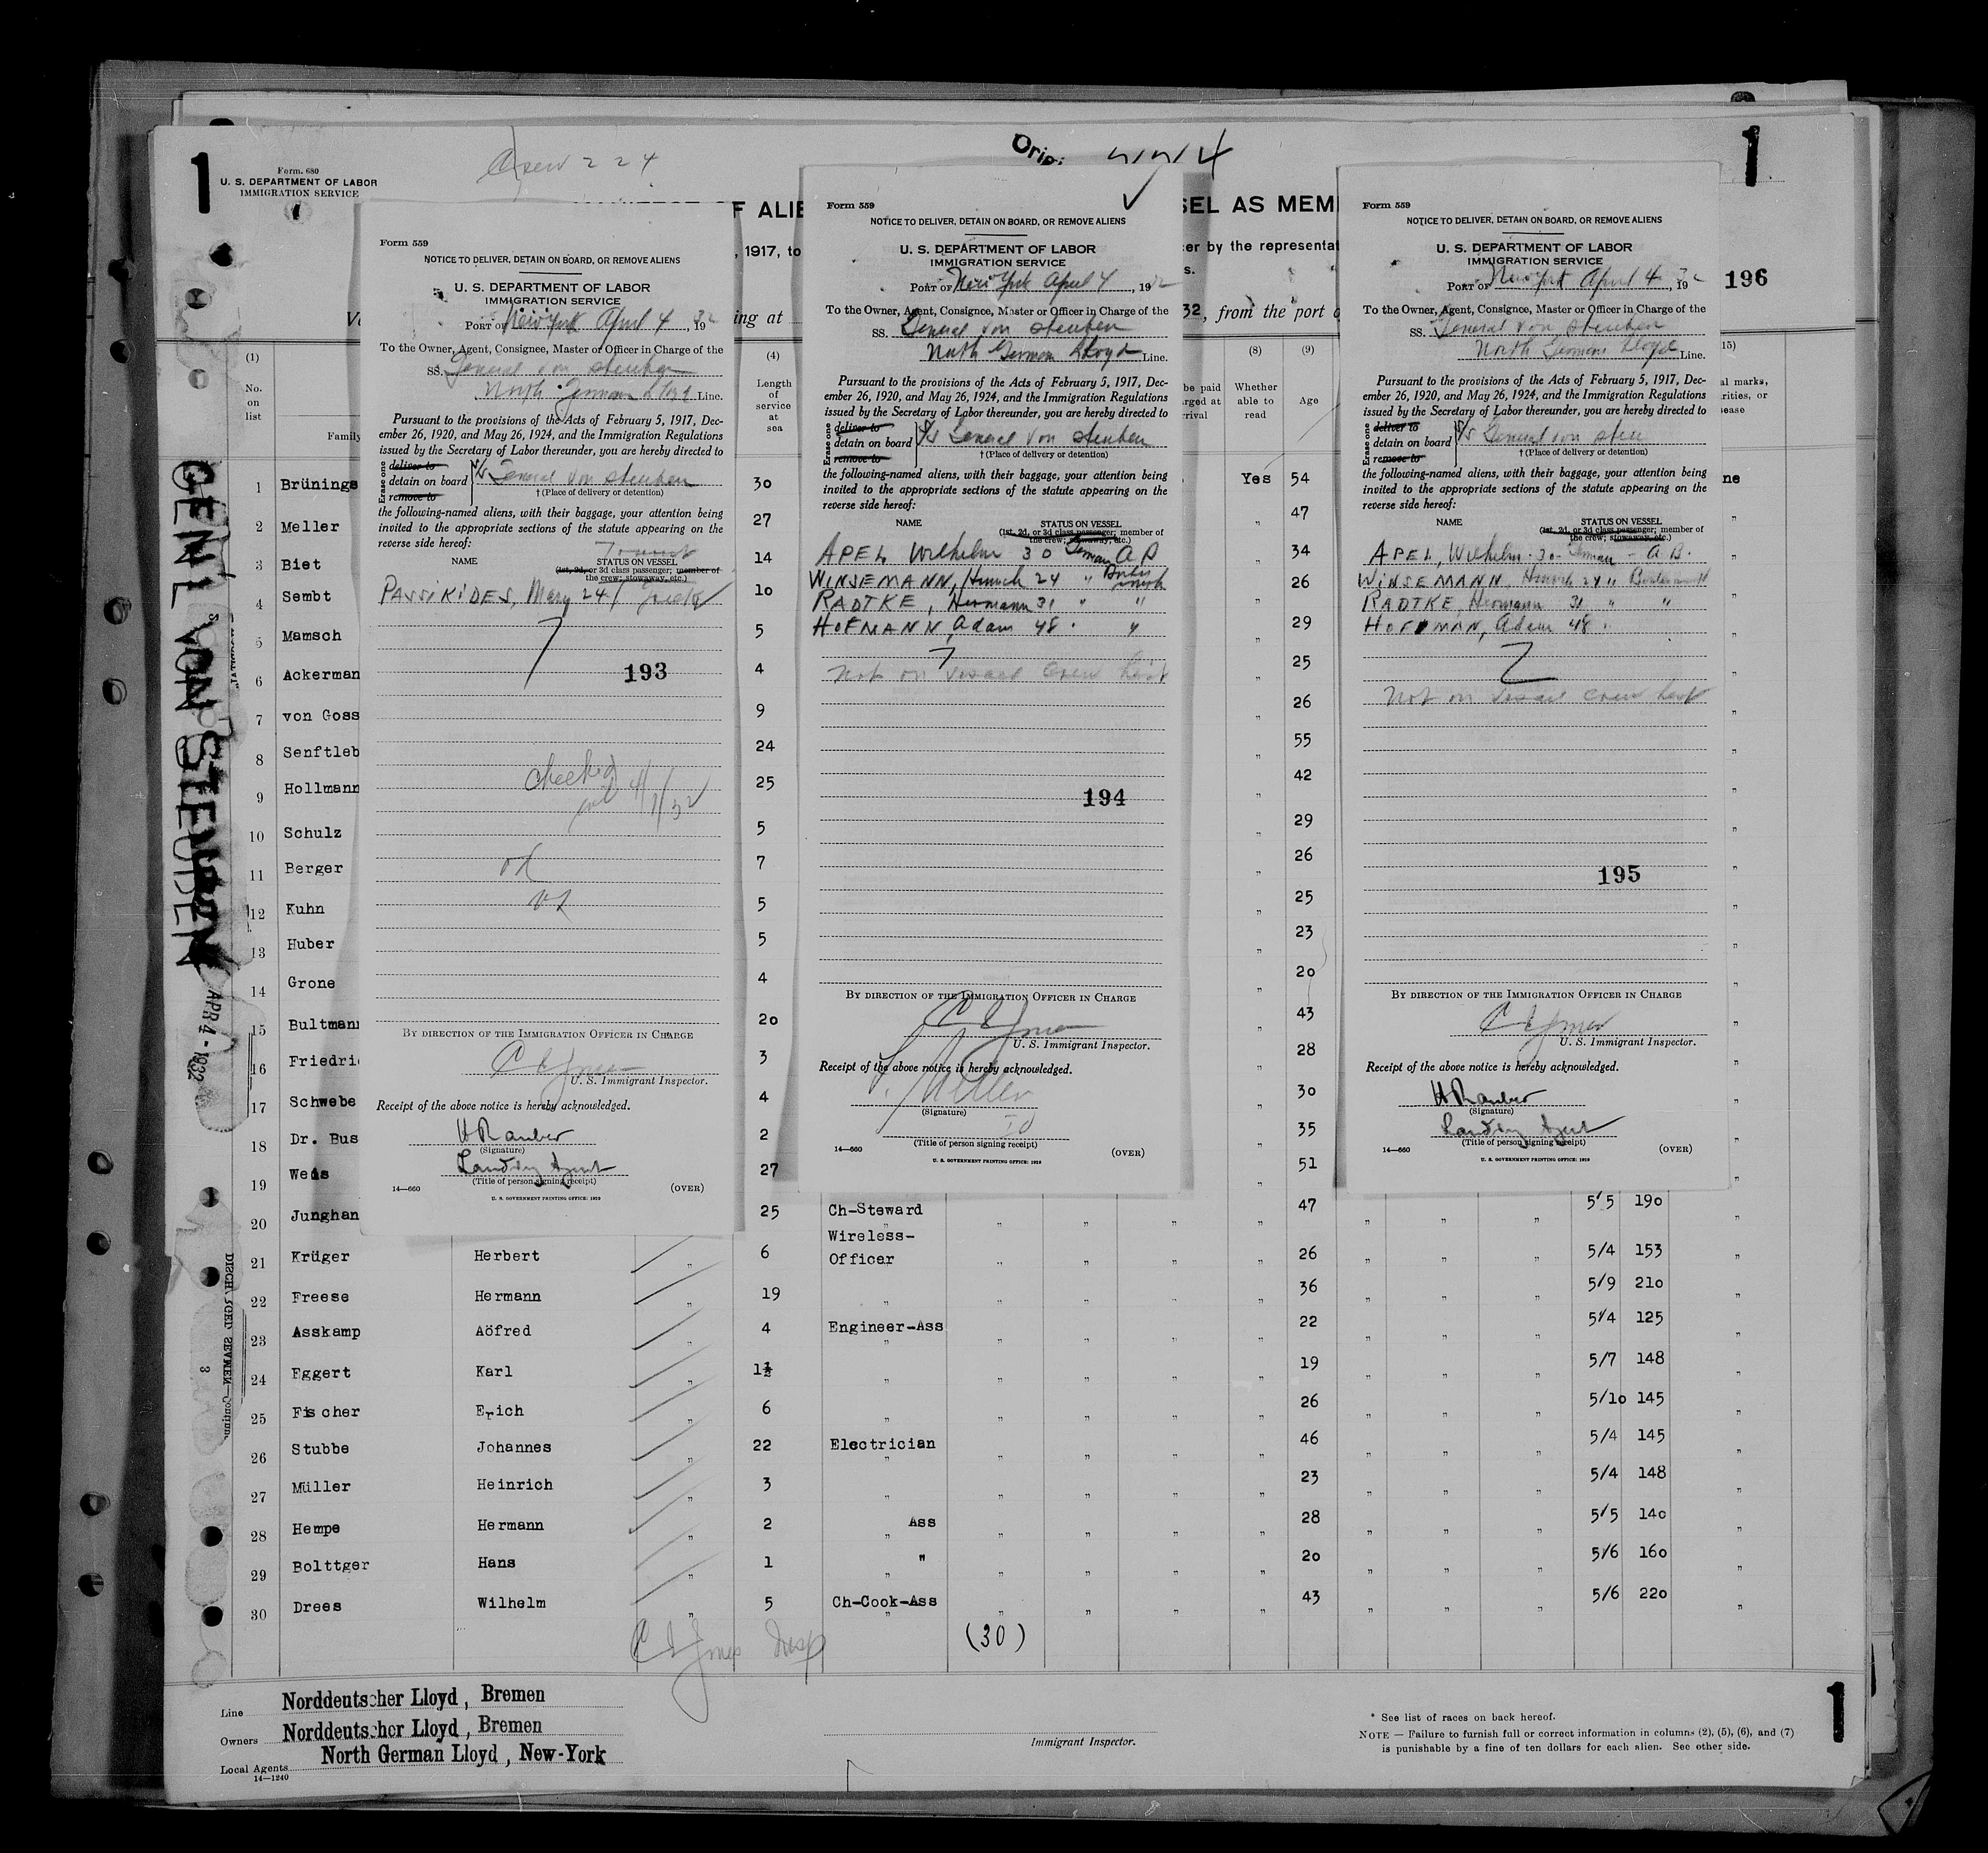 1
Form. 680
U. S. DEPARTMENT OF LABOR
IMMIGRATION SERVICE
Crew 224
1
196
F ALIE
SEL AS MEM
, 1917, to
er by the representat
ing at
32, from the port o
GENL VON STEUBEN
APR 4 - 1932
Form 559
NOTICE TO DELIVER, DETAIN ON BOARD, OR REMOVE ALIENS
U. S. DEPARTMENT OF LABOR
IMMIGRATION SERVICE
PORT OF New York April 4, 1932
To the Owner, Agent, Consignee, Master or Officer in Charge of the
SS. General von Steuben
North German Lloyd Line.
Pursuant to the provisions of the Acts of February 5, 1917, Dec-
ember 26, 1920, and May 26, 1924, and the Immigration Regulations
issued by the Secretary of Labor thereunder, you are hereby directed to
Erase one
deliver to
detain on board S/S General von Steuben
remove to
† (Place of delivery or detention)
the following-named aliens, with their baggage, your attention being
invited to the appropriate sections of the statute appearing on the
reverse side hereof:
Transit
NAME STATUS ON VESSEL
(1st, 2d, or 3d class passenger; member of
the crew; stowaway, etc.)
PASSIKIDES, Mary 24 / Greek
193
Checked
4/1/32
BY DIRECTION OF THE IMMIGRATION OFFICER IN CHARGE
U. S. Immigrant Inspector.
Receipt of the above notice is hereby acknowledged.
H Rauber
(Signature)
Landing Agent
(Title of person signing receipt)
14—660
(OVER)
Form 559
NOTICE TO DELIVER, DETAIN ON BOARD, OR REMOVE ALIENS
U. S. DEPARTMENT OF LABOR
IMMIGRATION SERVICE
PORT OF New York April 4, 1932
To the Owner, Agent, Consignee, Master or Officer in Charge of the
SS. General von Steuben
North German Lloyd Line.
Pursuant to the provisions of the Acts of February 5, 1917, Dec-
ember 26, 1920, and May 26, 1924, and the Immigration Regulations
issued by the Secretary of Labor thereunder, you are hereby directed to
Erase one
deliver to
detain on board S/S General von Steuben
remove to
† (Place of delivery or detention)
the following-named aliens, with their baggage, your attention being
invited to the appropriate sections of the statute appearing on the
reverse side hereof:
NAME STATUS ON VESSEL
(1st, 2d, or 3d class passenger; member of
the crew; stowaway, etc.)
APEL Wilhelm 30 German A B
WINSEMANN, Hinrich 24 "
RADTKE, Hermann 31 " "
HOFMANN, Adam 48 " "
Not on vessel Crew list
194
BY DIRECTION OF THE IMMIGRATION OFFICER IN CHARGE
U. S. Immigrant Inspector.
Receipt of the above notice is hereby acknowledged.
(Signature)
(Title of person signing receipt)
14—660
(OVER)
Form 559
NOTICE TO DELIVER, DETAIN ON BOARD, OR REMOVE ALIENS
U. S. DEPARTMENT OF LABOR
IMMIGRATION SERVICE
PORT OF New York April 4, 1932
To the Owner, Agent, Consignee, Master or Officer in Charge of the
SS. General von Steuben
North German Lloyd Line.
Pursuant to the provisions of the Acts of February 5, 1917, Dec-
ember 26, 1920, and May 26, 1924, and the Immigration Regulations
issued by the Secretary of Labor thereunder, you are hereby directed to
Erase one
deliver to
detain on board S/S General von
remove to
† (Place of delivery or detention)
the following-named aliens, with their baggage, your attention being
invited to the appropriate sections of the statute appearing on the
reverse side hereof:
NAME STATUS ON VESSEL
(1st, 2d, or 3d class passenger; member of
the crew; stowaway, etc.)
APEL, Wilhelm 30 German - A B.
WINSEMANN Hinrich 24 "
RADTKE, Hermann 31 " "
HOFFMAN, Adam 48 "
Not on vessel crew list
195
BY DIRECTION OF THE IMMIGRATION OFFICER IN CHARGE
U. S. Immigrant Inspector.
Receipt of the above notice is hereby acknowledged.
H Rauber
(Signature)
Landing Agent
(Title of person signing receipt)
14—660
(OVER)
(1) (4) (8) (9)
No. on list
Family
Length of service at sea
Whether able to read
Age
1 Brünings 30 Yes 54
2 Meller 27 " 47
3 Biet 14 " 34
4 Sembt 10 " 26
5 Mamsch 5 " 29
6 Ackerman 4 " 25
7 von Goss 9 " 26
8 Senftleb 24 " 55
9 Hollmann 25 " 42
10 Schulz 5 " 29
11 Berger 7 " 26
12 Kuhn 5 " 25
13 Huber 5 " 23
14 Grone 4 " 20
15 Bultmann 20 " 43
16 Friedri 3 " 28
17 Schwebe 4 " 30
18 Dr. Bus 2 " 35
19 Weis 27 " 51
20 Junghan 25 Ch-Steward " 47 5'5 190
21 Krüger Herbert " 6 Wireless-Officer " 26 5/4 153
22 Freese Hermann " 19 " 36 5/9 210
23 Asskamp Aöfred " 4 Engineer-Ass " 22 5/4 125
24 Eggert Karl " 1½ " 19 5/7 148
25 Fischer Erich " 6 " 26 5/10 145
26 Stubbe Johannes " 22 Electrician " 46 5/4 145
27 Müller Heinrich " 3 " 23 5/4 148
28 Hempe Hermann " 2 Ass " 28 5/5 140
29 Bolttger Hans " 1 " 20 5/6 160
30 Drees Wilhelm " 5 Ch-Cook-Ass " 43 5/6 220
(30)
Line Norddeutscher Lloyd, Bremen
Owners Norddeutscher Lloyd, Bremen
Local Agents North German Lloyd, New-York
14—1240
Immigrant Inspector.
* See list of races on back hereof.
NOTE — Failure to furnish full or correct information in columns (2), (5), (6), and (7)
is punishable by a fine of ten dollars for each alien. See other side.
1